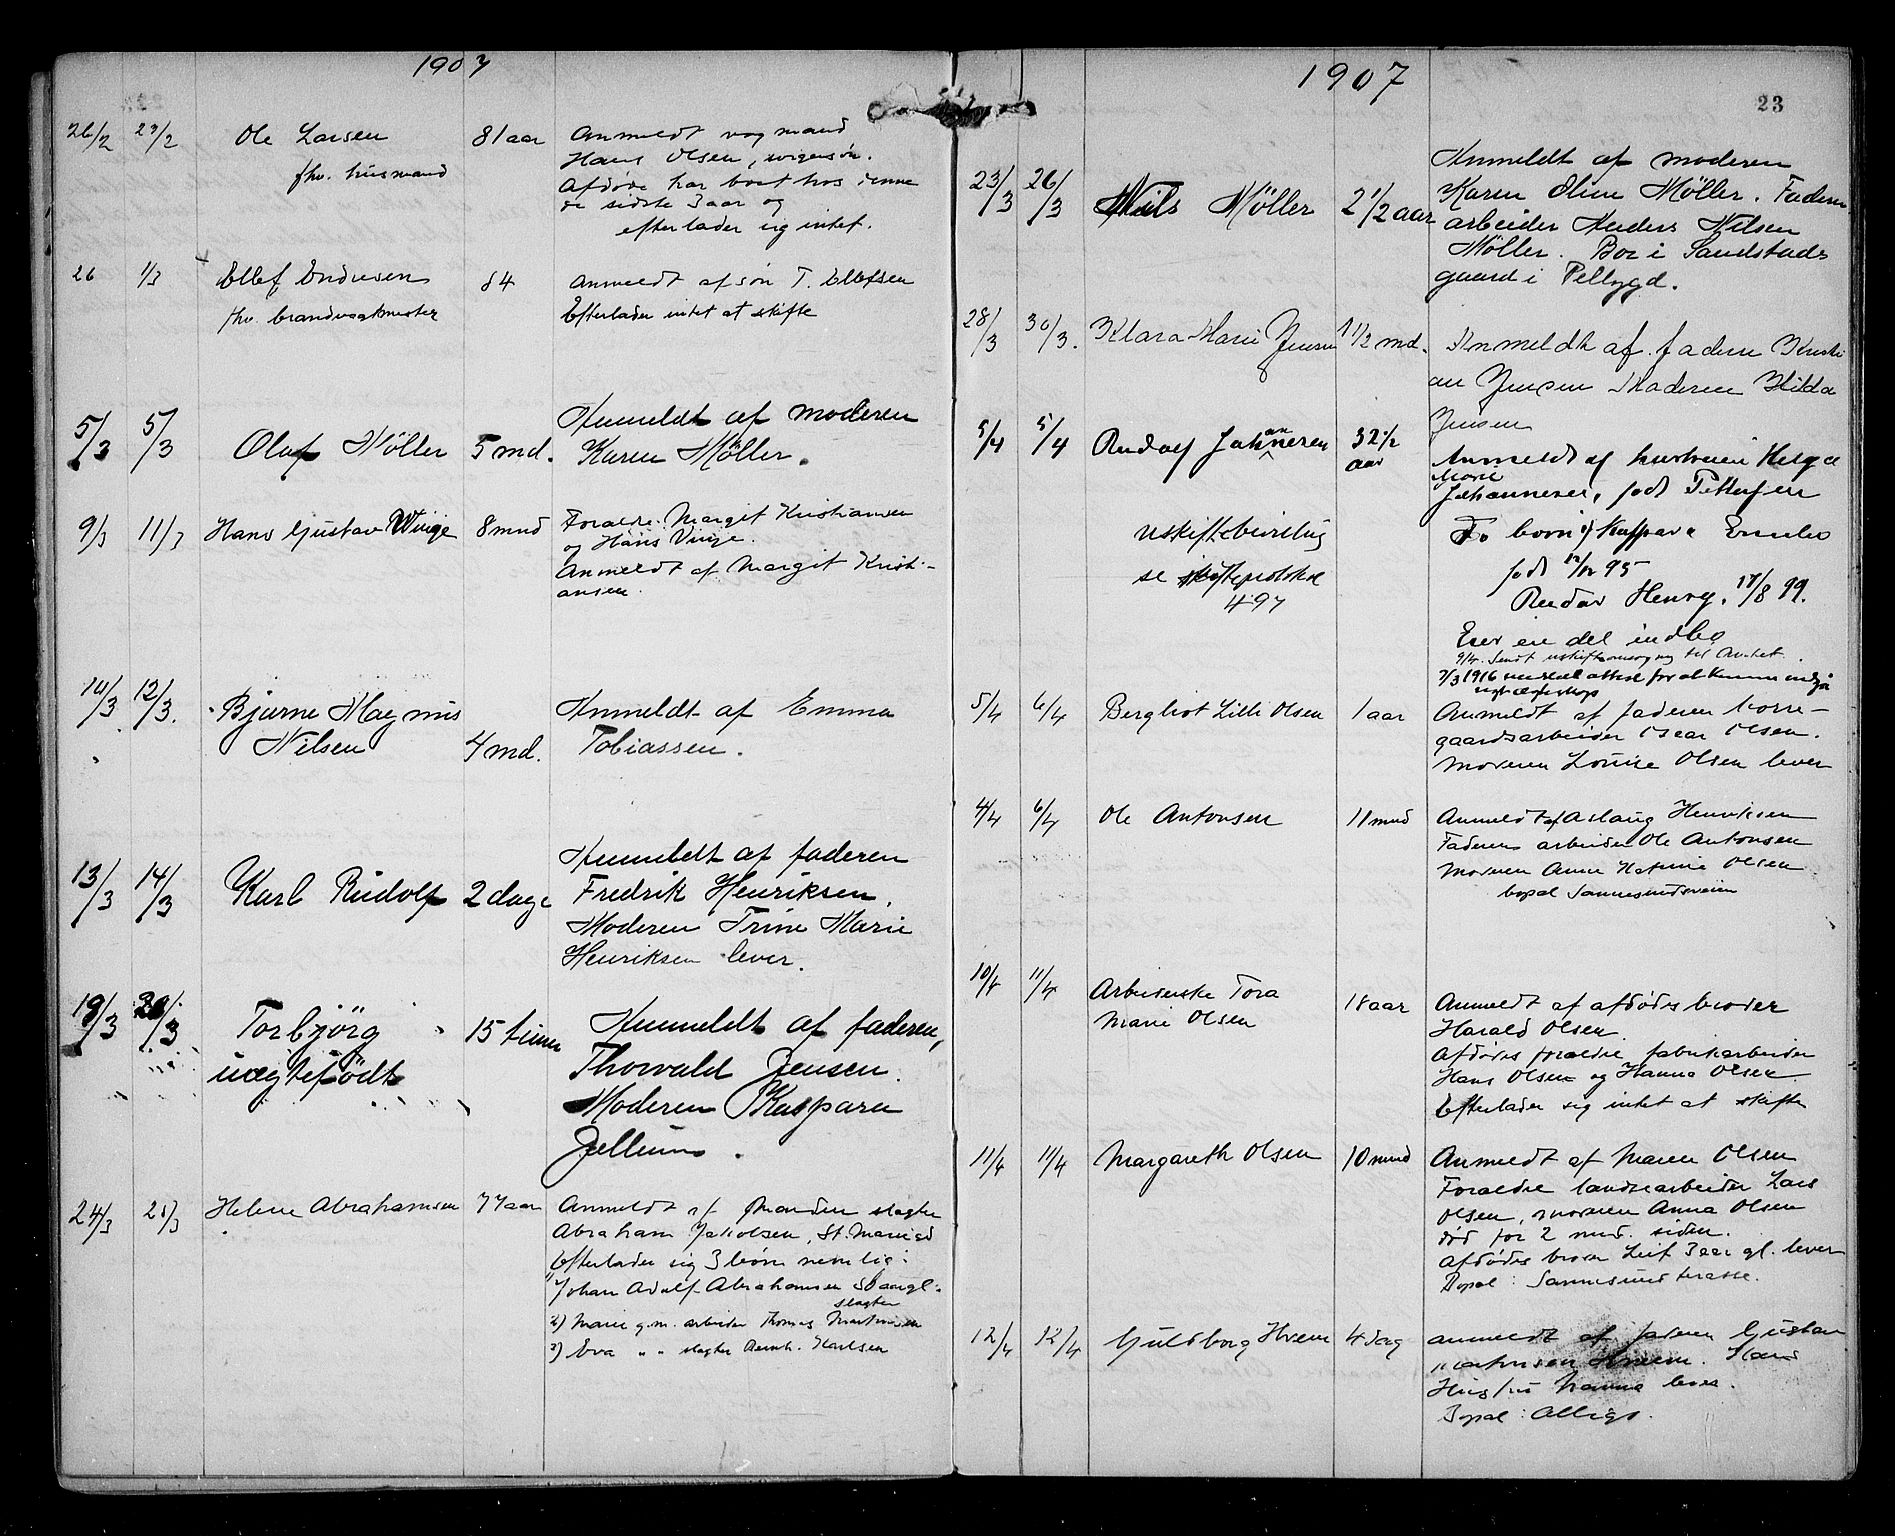 1907
26/2 27/2 Ole Larsen 81 aar Anmeldt vog mand
fhv. husmand Hans Olsen, svigersøn.
Afdøde har boet hos denne
de sidste 3 aar og
efterlader sig intet.
26 1/3 Ellef Endresen 84 Anmeldt af søn T. Ellefsen
fhv. brandvagtmester Efterlader intet at skifte
5/3 5/3 Olaf Möller 5 md. Anmeldt af moderen
Karen Möller.
9/3 11/3 Hans Gustav Winge 8 mnd Foraldre Margit Kristiansen
og Hans Vinge.
Anmeldt af Margit Kristi-
ansen.
14/3 12/3. Bjarne Magnus Anmeldt af Emma
Nilsen 4 md. Tobiassen.
13/3 14/3 Karl Rudolf 2 dage Anmeldt af faderen
Fredrik Henriksen.
Moderen Trine Marie
Henriksen lever.
19/3 20/3 Torbjörg 15 timer Anmeldt af faderen,
uægtefødt Thorvald Jensen.
Moderen Kaspara
Jellum.
24/3 25/3 Helene Abrahamsen 77 aar Anmeldt af Manden slagter
Abraham Jakobsen, St. Mariegd
Efterlader sig 3 børn nemlig:
1) Johan Adolf Abrahamsen 50 aar gl.
slagter
2) Marie g.m. arbeider Thomas Martinsen
3) Eva " " slagter Bernh. Karlsen
1907
23
23/3 26/3 Niels Möller 2 1/2 aar Anmeldt af moderen
Karen Oline Möller. Faderen
arbeider Anders Nilsen
Möller. Bor i Sandstads
gaard i Tellbygd.
28/3 30/3. Klara Marie Jensen 1 1/2 md. Anmeldt af faderen Kristi
an Jensen Moderen Hilda
Jensen
5/4 5/4 Rudolf Johannesen 32 1/2 aar Anmeldt af hustruen Helga
Marie
Johannesen, født Pettersen
To born 1) Kaspara
født 12/12 95
Reidar Henry, 17/8 99.
Eier en del indbo
uskiftebevilling
se skifteprotokol
497
9/4. Sendt uskifteansøgning til Amtet.
7/3 1916 meddelt attest for at kunne indgaa
nyt ægteskap
5/4 6/4 Bergliot Lilli Olsen 1 aar Anmeldt af faderen borre-
gaardsarbeider Oscar Olsen.
Moderen Louise Olsen lever
4/4 6/4 Ole Antonsen 11 mnd Anmeldt af Aslaug Henriksen
Faderen arbeider Ole Antonsen
Moderen Anne Katrine Olsen
bopæl Sannesundsveien
10/4 11/4 Arbeiderske Tora 18 aar Anmeldt af afdødes broder
Marie Olsen Harald Olsen.
Afdødes foraldre fabrikarbeider
Hans Olsen og Hanna Olsen.
Efterlader sig intet at skifte
11/4 11/4 Margareth Olsen 10 mnd Anmeldt af Maren Olsen
Foraldre landsearbeider Lars
Olsen, moderen Anna Olsen
død for 2 mnd. siden.
Afdødes broder Leif 3 aar gl. lever
Bopæl: Sannesund terasse.
12/4 12/4 Guldborg Hveem 4 dag anmeldt af faderen Gustav
Hveem. Hans
Hustru Hanna lever.
Bopæl: Alligt.